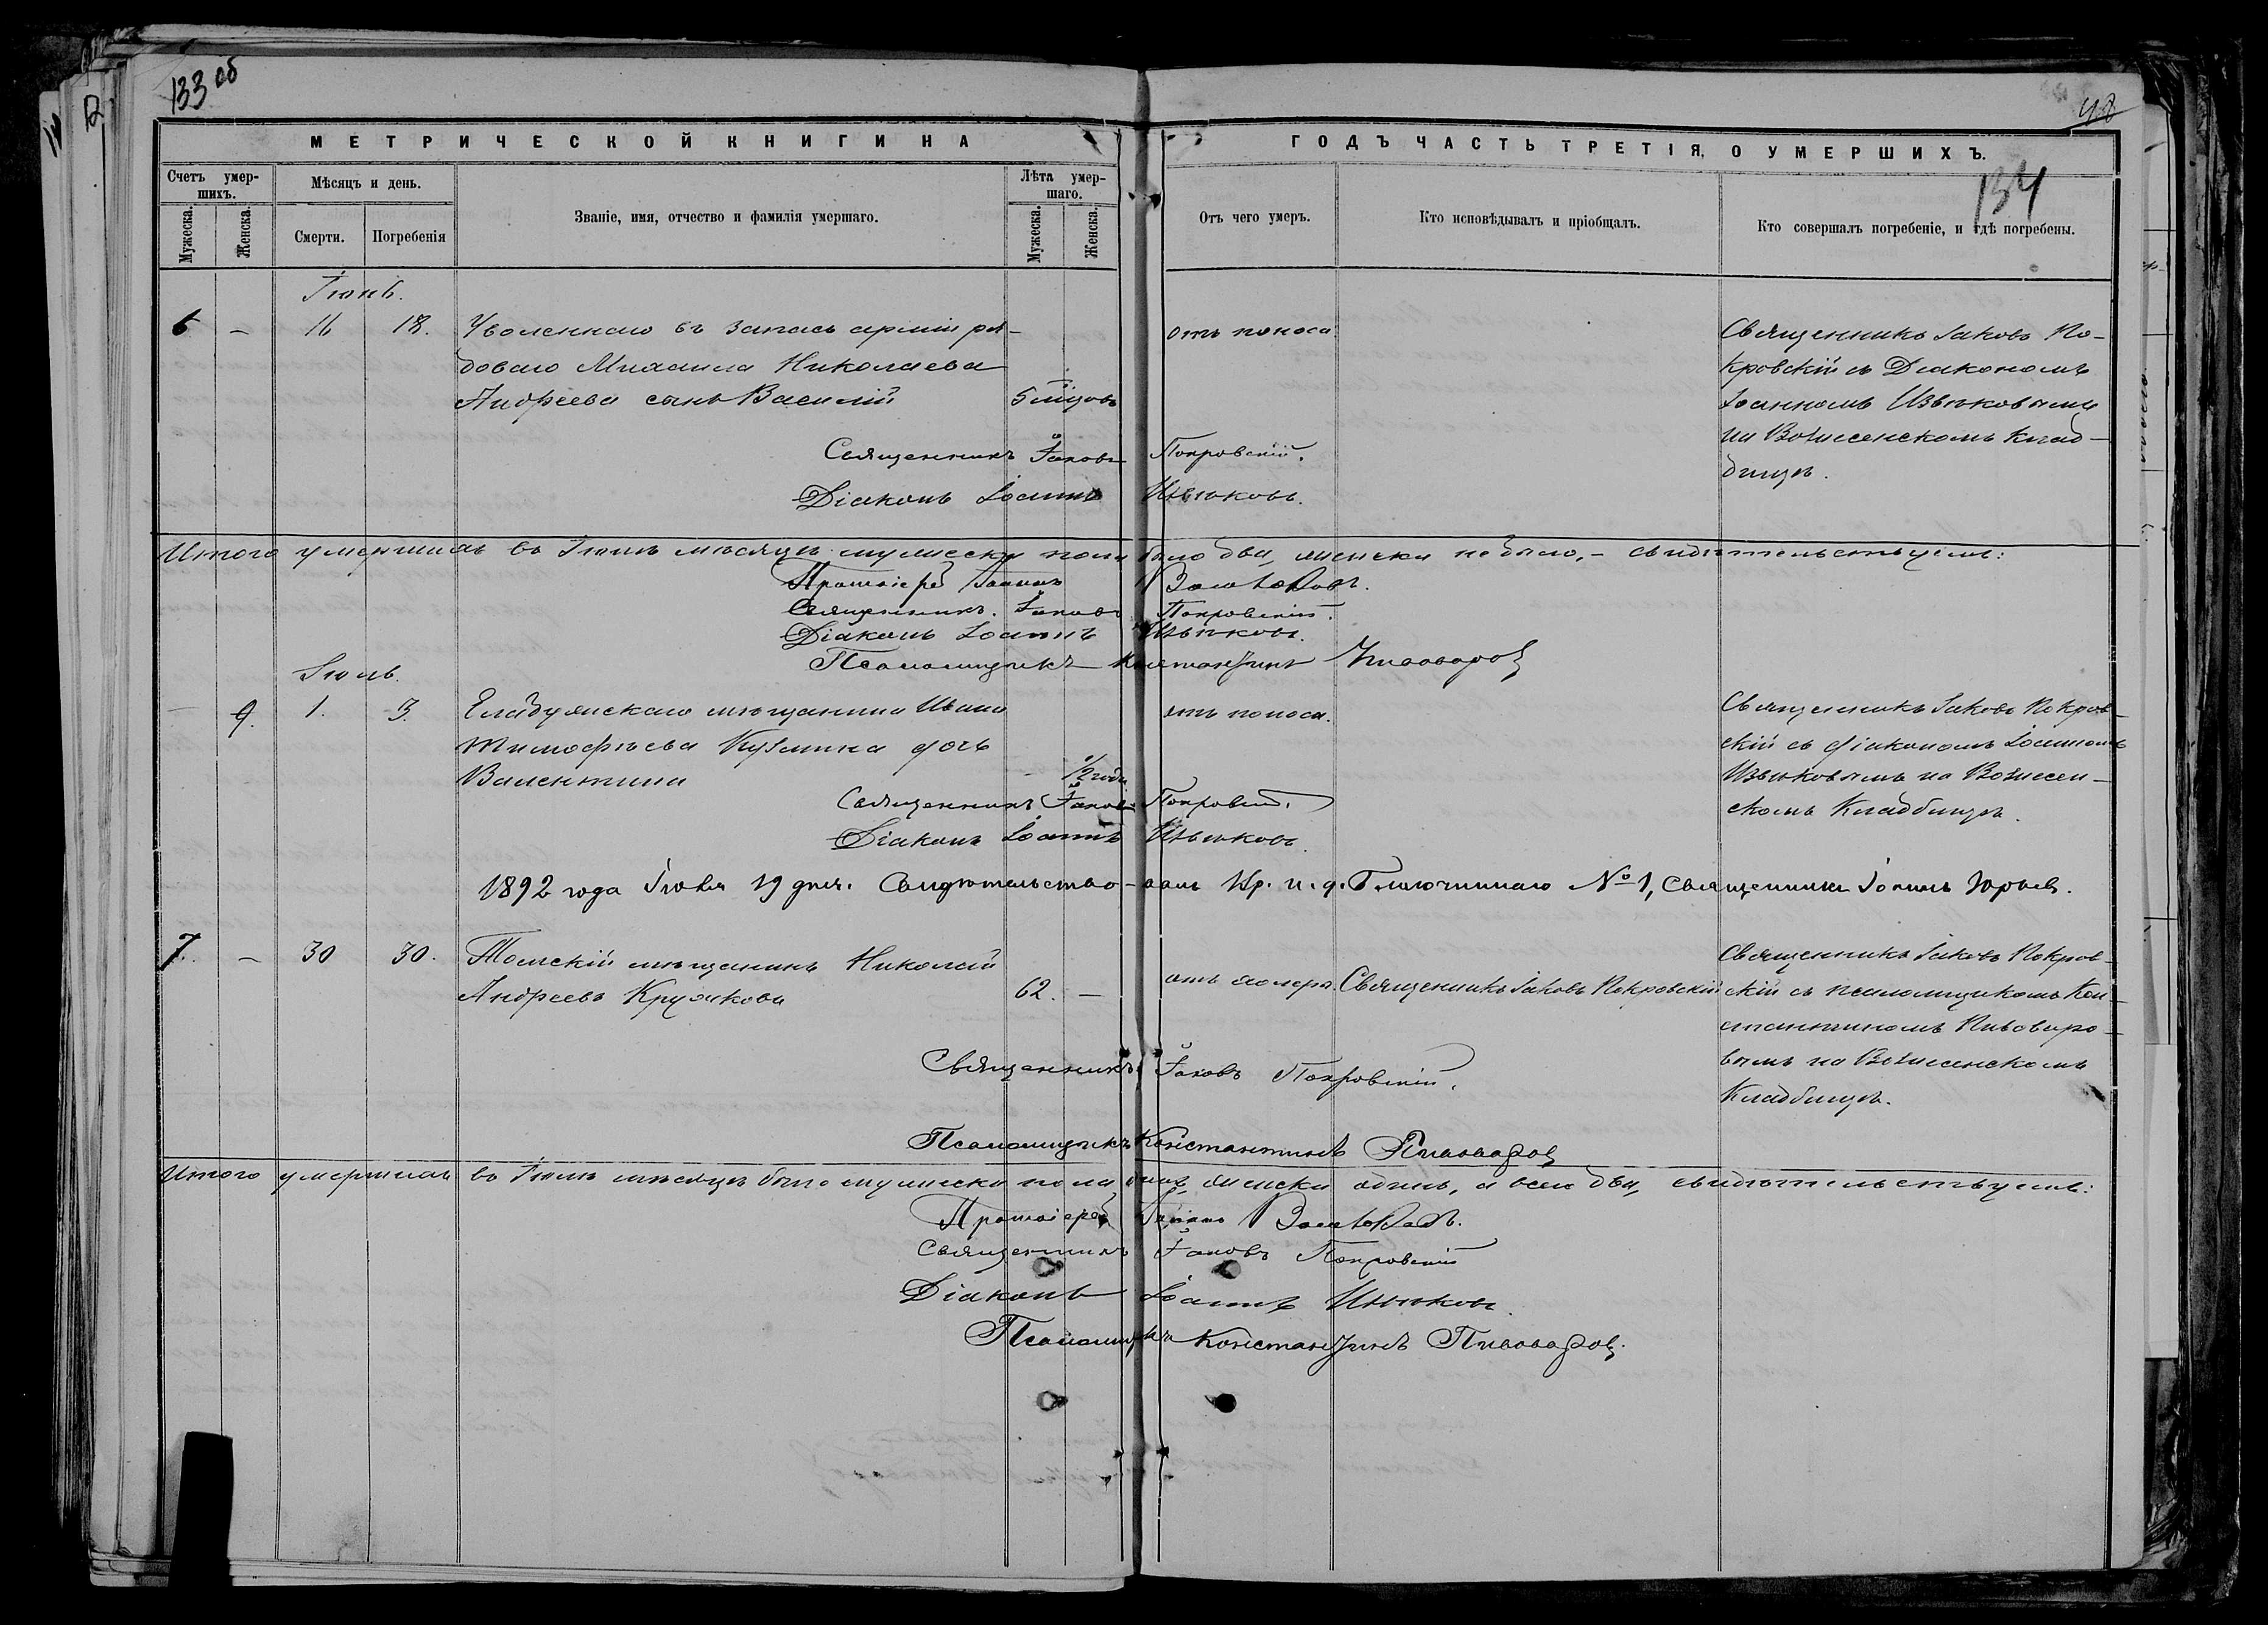 133 об
48
134
МЕТРИЧЕСКОЙ КНИГИ НА
ГОДЪ ЧАСТЬ ТРЕТІЯ, О УМЕРШИХЪ.
Счетъ умер-
шихъ.
Мужеска.
Женска.
Мѣсяцъ и день.
Смерти.
Погребенія
Званіе, имя, отчество и фамилія умершаго.
Лѣта умер-
шаго.
Мужеска.
Женска.
Отъ чего умеръ.
Кто исповѣдывалъ и пріобщалъ.
Кто совершалъ погребеніе, и гдѣ погребены.
Іюнь.
6 – 16 18.
Уволеннаго въ запасъ арміи ря-
доваго Михаила Николаева
Андреева сынъ Василій
5 мѣсцовъ
отъ поноса.
Священникъ Іаковъ По-
кровскій съ Діакономъ
Іоанномъ Извѣковымъ
на Вознесенскомъ клад-
бищѣ.
Священникъ Іаковъ Покровскій.
Діаконъ Іоаннъ Извѣковъ.
Итого умершихъ въ Іюнѣ мѣсяцѣ мужеска пола было два, женска не было, – свидѣтельствуемъ:
Протоіерей Іоаннъ
Священникъ Іаковъ Покровскій.
Діаконъ Іоаннъ Извѣковъ.
Псаломщикъ Константинъ Пивоваровъ
Іюль.
– 9. 1. 3.
Елабужскаго мѣщанина Ивана
Тимофѣева Кузмина дочь
Валентина
1/2 года
отъ поноса.
Священникъ Іаковъ Покров-
скій съ діакономъ Іоанномъ
Извѣковымъ на Вознесен-
скомъ Кладбищѣ.
Священникъ Іаковъ Покровскій.
Діаконъ Іоаннъ Извѣковъ.
1892 года Іюля 19 дня. Свидѣтельство-валъ Кр. и. д. Благочиннаго № 1, Священникъ Іоаннъ Юрьевъ.
7. – 30 30.
Томскій мѣщанинъ Николай
Андреевъ Кружковъ
62. –
отъ холеры.
Священникъ Іаковъ Покровскій
Священникъ Іаковъ Покров-
скій съ псаломщикомъ Кон-
стантиномъ Пивоваро-
вымъ на Вознесенскомъ
Кладбищѣ.
Священникъ Іаковъ Покровскій.
Псаломщикъ Константинъ Пивоваровъ
Итого умершихъ въ Іюлѣ мѣсяцѣ было мужеска пола одинъ, женска одинъ, а всего два, свидѣтельствуемъ:
Протоіерей Іоаннъ
Священникъ Іаковъ Покровскій
Діаконъ Іоаннъ Извѣковъ.
Псаломщикъ Константинъ Пивоваровъ.